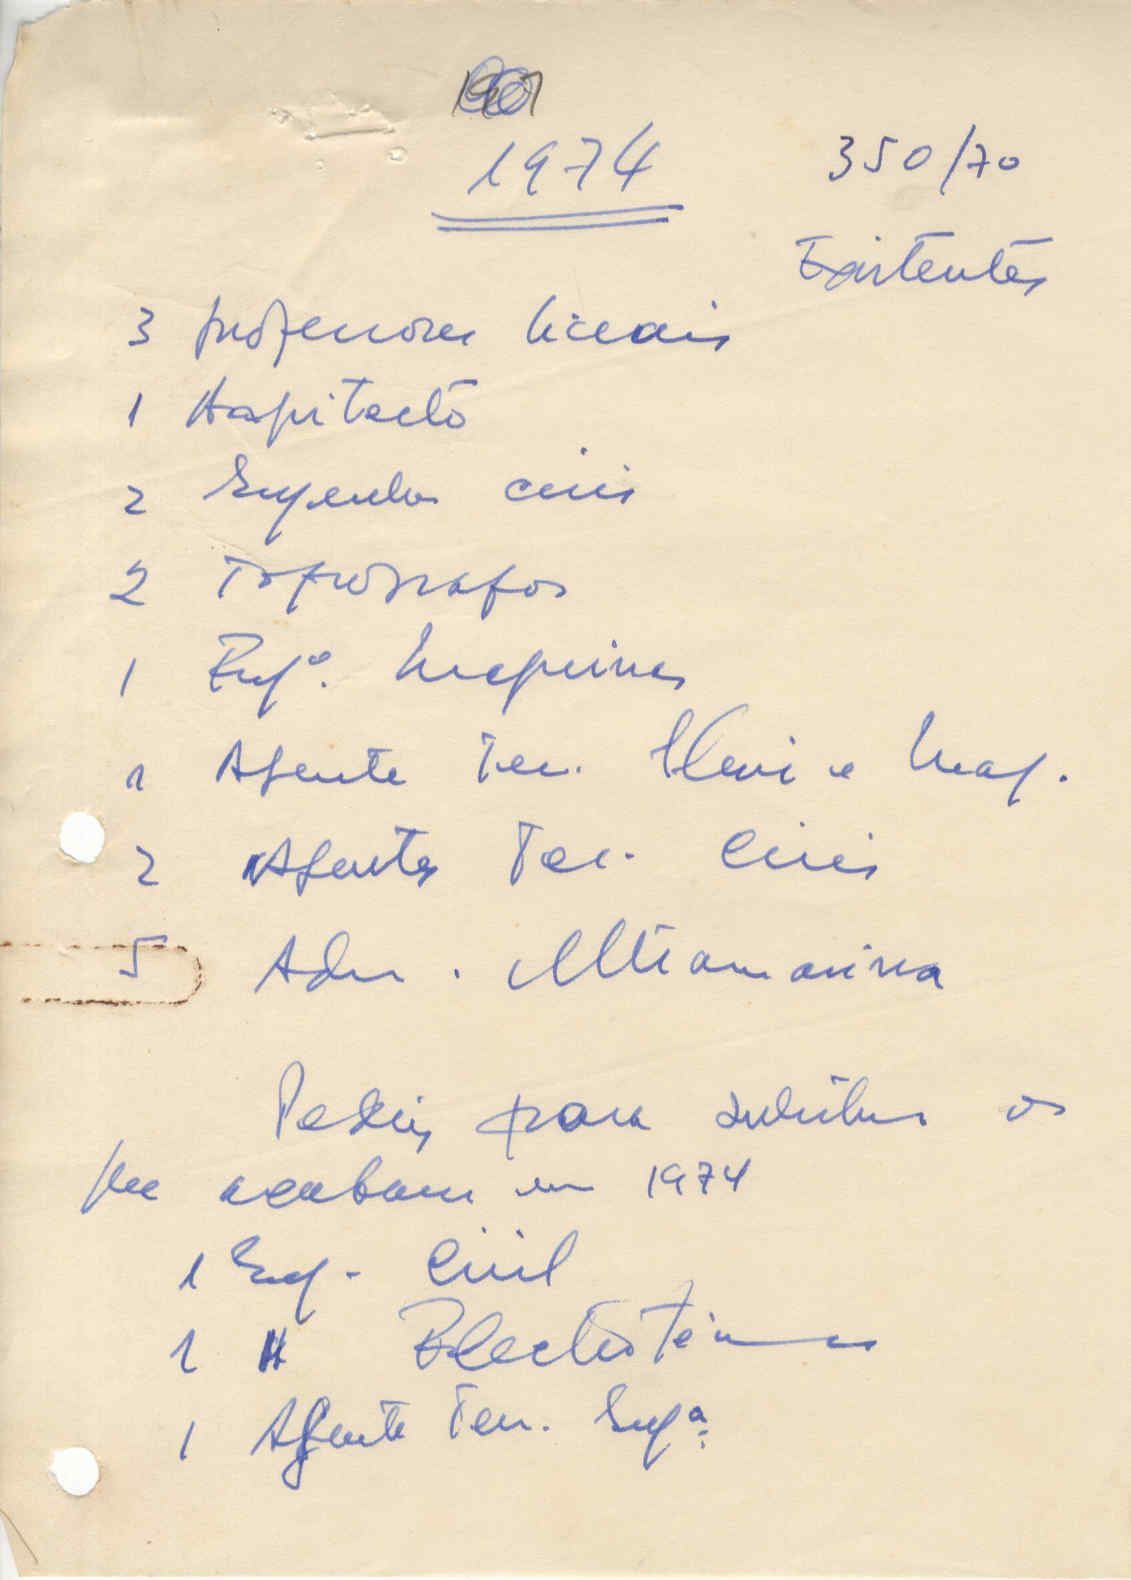 1974
350/70
Existentes
3 professores liceais
1 Arquitecto
2 Engenhos civis
2 Topógrafos
1 Engº. Maquinas
1 Agente Tec. Elect. e Maq.
2 Agentes Tec. Civis
5 Adm. Ultramarina
Pedir para substituir os
que acabam em 1974
1 Eng. Civil
1 " Electrotécnico
1 Agente Tec. Engª.